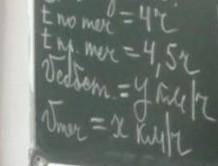 = 4ч
t по теч = 4ч
t пр. теч = 4,5ч
Vсобст. = y км/ч
Vтеч = x км/ч